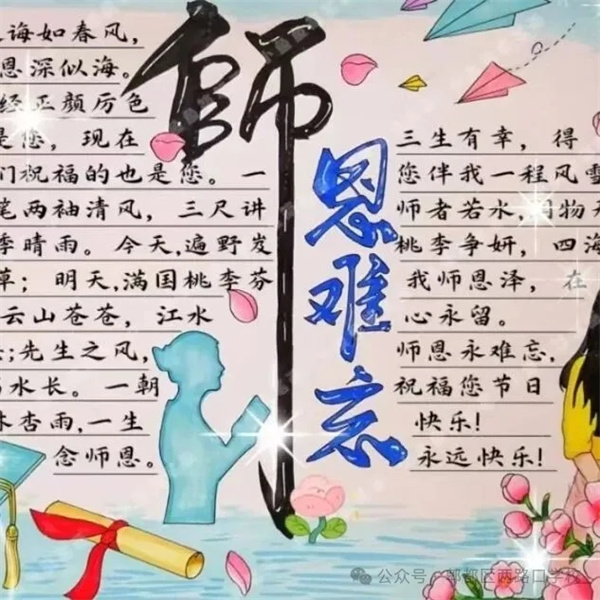 師
恩
难
忘
诲如春风，
恩深似海。
经正颜厉色
是您，现在
们祝福的也是您。一
笔两袖清风，三尺讲
季晴雨。今天,遍野发
草；明天,满国桃李芬
云山苍苍，江水
;先生之风，
水长。一朝
杏雨,一生
念师恩。
三生有幸，得
您伴我一程风雪
师者若水,润物
桃李争妍，四海
我师恩泽，在
心永留。
师恩永难忘,
祝福您节日
快乐!
永远快乐!
公众号 · 都区两路口学校